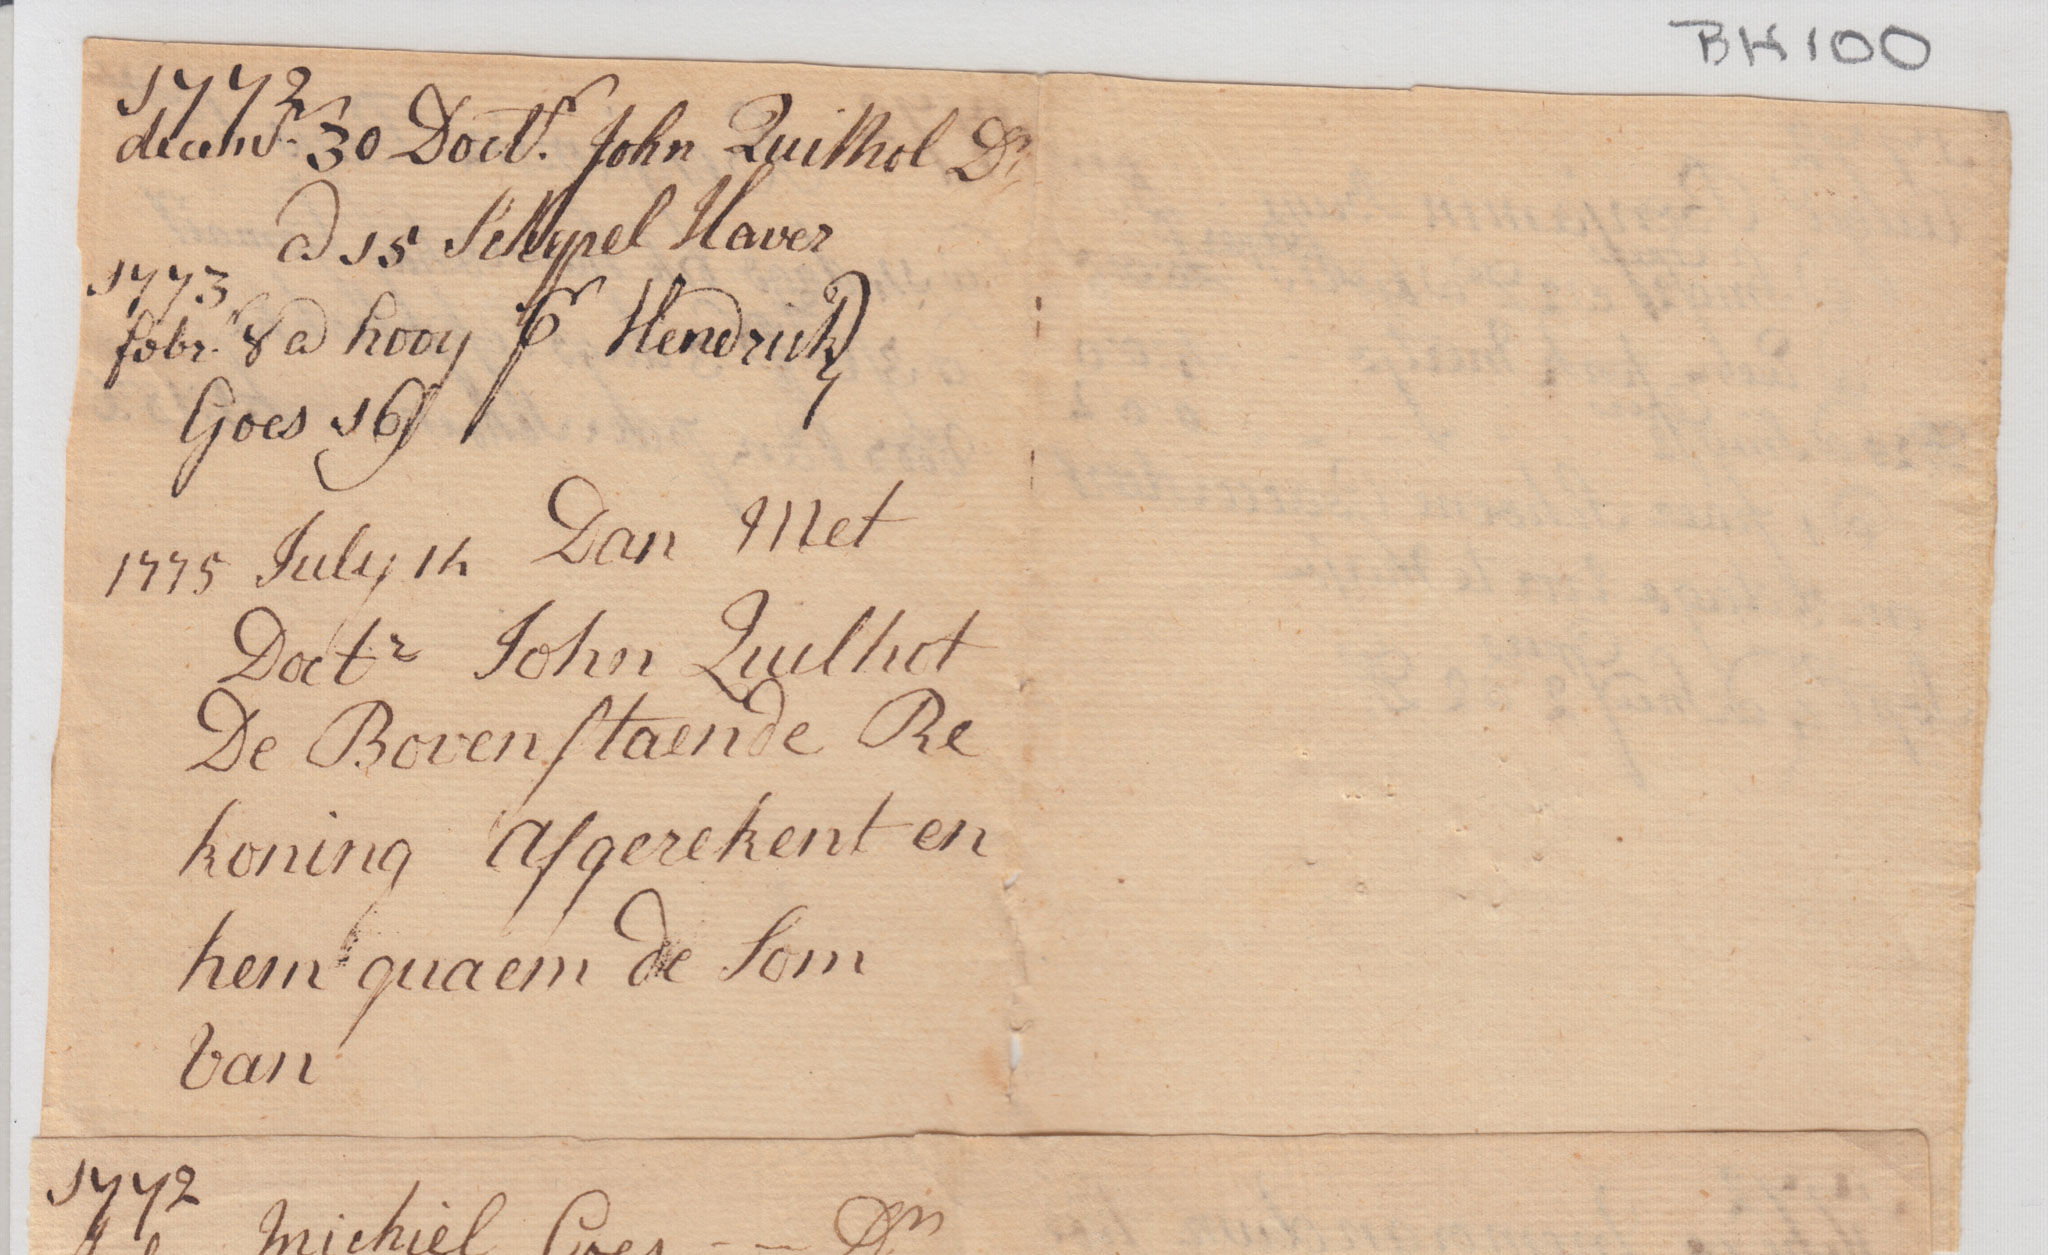 BK100
1772
decemr. 30 Doctr. John Quilhol Dr
a 15 Schepel Haver
1773
febr. 8 a hooy pr Hendrick
Goes 16
1775 July 14 Dan Met
Doctr John Quilhot
De Bovenstaende Re
koning Afgerekent en
hem quaem de Som
van
1772
Michiel Goes -- Dr